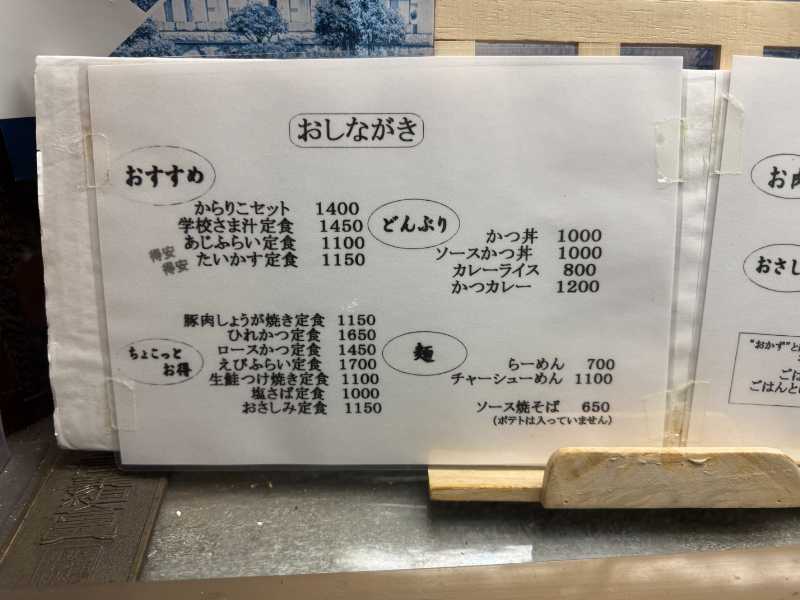 おしながき
おすすめ
からりこセット 1400
学校さま汁定食 1450
得安 あじふらい定食 1100
得安 たいかす定食 1150
どんぶり
かつ丼 1000
ソースかつ丼 1000
カレーライス 800
かつカレー 1200
ちょこっと
お得
豚肉しょうが焼き定食 1150
ひれかつ定食 1650
ロースかつ定食 1450
えびふらい定食 1700
生鮭つけ焼き定食 1100
塩さば定食 1000
おさしみ定食 1150
麺
らーめん 700
チャーシューめん 1100
ソース焼そば 650
(ポテトは入っていません)
お肉
おさし
"おかず"と
ごは
ごはんと